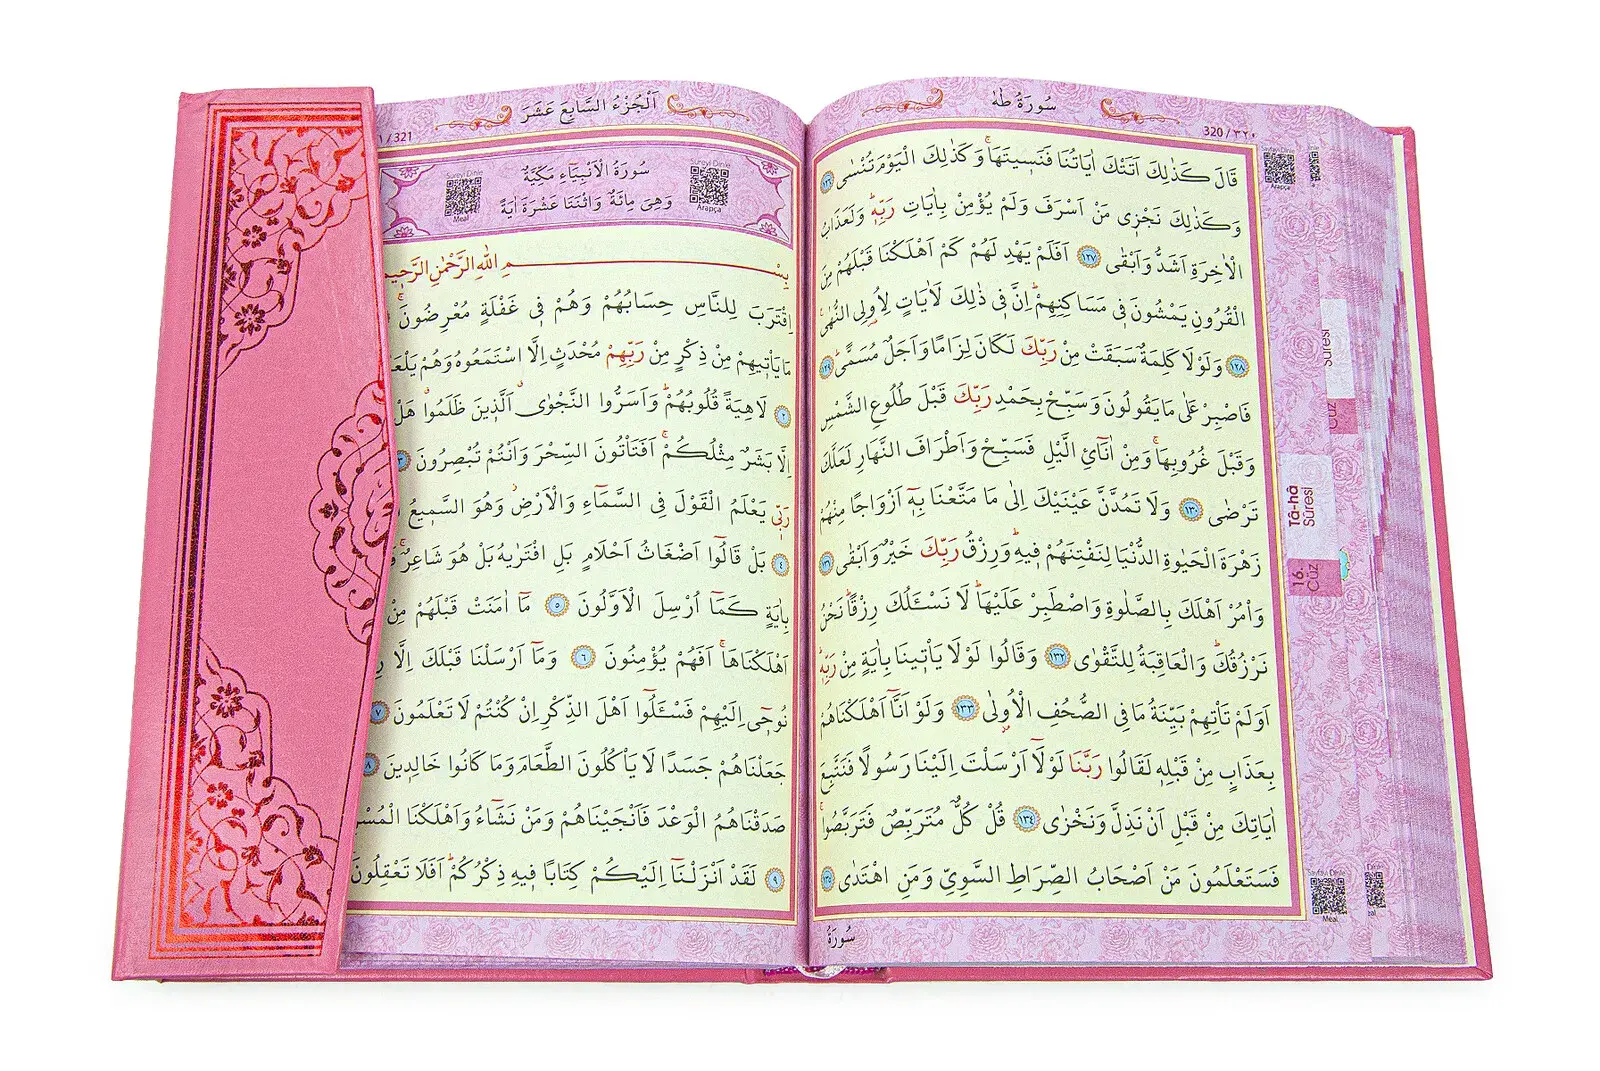 سُورَةُ طٰهٰ
320 / ٣٢٠
قَالَ كَذٰلِكَ اَتَتْكَ اٰيَاتُنَا فَنَسٖيتَهَاۚ وَكَذٰلِكَ الْيَوْمَ تُنْسٰى ﴿١٢٦﴾
وَكَذٰلِكَ نَجْزٖى مَنْ اَسْرَفَ وَلَمْ يُؤْمِنْ بِاٰيَاتِ رَبِّهٖؕ وَلَعَذَابُ
الْاٰخِرَةِ اَشَدُّ وَاَبْقٰى ﴿١٢٧﴾ اَفَلَمْ يَهْدِ لَهُمْ كَمْ اَهْلَكْنَا قَبْلَهُمْ مِنَ
الْقُرُونِ يَمْشُونَ فٖى مَسَاكِنِهِمْؕ اِنَّ فٖى ذٰلِكَ لَاٰيَاتٍ لِاُولِى النُّهٰى
﴿١٢٨﴾ وَلَوْلَا كَلِمَةٌ سَبَقَتْ مِنْ رَبِّكَ لَكَانَ لِزَامًا وَاَجَلٌ مُسَمًّىؕ ﴿١٢٩﴾
فَاصْبِرْ عَلٰى مَا يَقُولُونَ وَسَبِّحْ بِحَمْدِ رَبِّكَ قَبْلَ طُلُوعِ الشَّمْسِ
وَقَبْلَ غُرُوبِهَاۚ وَمِنْ اٰنَٓائِ الَّيْلِ فَسَبِّحْ وَاَطْرَافَ النَّهَارِ لَعَلَّكَ
تَرْضٰى ﴿١٣٠﴾ وَلَا تَمُدَّنَّ عَيْنَيْكَ اِلٰى مَا مَتَّعْنَا بِهٖٓ اَزْوَاجًا مِنْهُمْ
زَهْرَةَ الْحَيٰوةِ الدُّنْيَا لِنَفْتِنَهُمْ فٖيهِؕ وَرِزْقُ رَبِّكَ خَيْرٌ وَاَبْقٰى ﴿١٣١﴾
وَاْمُرْ اَهْلَكَ بِالصَّلٰوةِ وَاصْطَبِرْ عَلَيْهَاؕ لَا نَسْـَٔلُكَ رِزْقًاؕ نَحْنُ
نَرْزُقُكَؕ وَالْعَاقِبَةُ لِلتَّقْوٰى ﴿١٣٢﴾ وَقَالُوا لَوْلَا يَاْتٖينَا بِاٰيَةٍ مِنْ رَبِّهٖؕ
اَوَلَمْ تَاْتِهِمْ بَيِّنَةُ مَا فِى الصُّحُفِ الْاُولٰى ﴿١٣٣﴾ وَلَوْ اَنَّٓا اَهْلَكْنَاهُمْ
بِعَذَابٍ مِنْ قَبْلِهٖ لَقَالُوا رَبَّنَا لَوْلَٓا اَرْسَلْتَ اِلَيْنَا رَسُولًا فَنَتَّبِعَ
اٰيَاتِكَ مِنْ قَبْلِ اَنْ نَذِلَّ وَنَخْزٰى ﴿١٣٤﴾ قُلْ كُلٌّ مُتَرَبِّصٌ فَتَرَبَّصُواۚ
فَسَتَعْلَمُونَ مَنْ اَصْحَابُ الصِّرَاطِ السَّوِىِّ وَمَنِ اهْتَدٰى ﴿١٣٥﴾
سُورَةُ
Sureyi Dinle
Arapça
Sûresi
Cüz
Tâ-hâ
Sûresi
16.
Cüz
Sayfayı Dinle
Meal
اَلْجُزْءُ السَّابِعَ عَشَرَ
/ 321
سُورَةُ الْاَنْبِيَاءِ مَكِّيَّةٌ
وَهِىَ مِائَةٌ وَاثْنَتَا عَشْرَةَ اٰيَةً
Sureyi Dinle
Arapça
Sureyi Dinle
Meal
بِسْمِ اللّٰهِ الرَّحْمٰنِ الرَّحٖيمِ
اِقْتَرَبَ لِلنَّاسِ حِسَابُهُمْ وَهُمْ فٖى غَفْلَةٍ مُعْرِضُونَۚ
مَا يَاْتٖيهِمْ مِنْ ذِكْرٍ مِنْ رَبِّهِمْ مُحْدَثٍ اِلَّا اسْتَمَعُوهُ وَهُمْ
﴿٢﴾ لَاهِيَةً قُلُوبُهُمْؕ وَاَسَرُّوا النَّجْوٰى الَّذٖينَ ظَلَمُوا هَلْ
اِلَّا بَشَرٌ مِثْلُكُمْۚ اَفَتَاْتُونَ السِّحْرَ وَاَنْتُمْ تُبْصِرُونَ ﴿٣﴾
رَبّٖى يَعْلَمُ الْقَوْلَ فِى السَّمَٓاءِ وَالْاَرْضِؗ وَهُوَ السَّمٖيعُ
﴿٤﴾ بَلْ قَالُٓوا اَضْغَاثُ اَحْلَامٍ بَلِ افْتَرٰيهُ بَلْ هُوَ شَاعِرٌۚ
بِاٰيَةٍ كَمَٓا اُرْسِلَ الْاَوَّلُونَ ﴿٥﴾ مَٓا اٰمَنَتْ قَبْلَهُمْ مِنْ
اَهْلَكْنَاهَاۚ اَفَهُمْ يُؤْمِنُونَ ﴿٦﴾ وَمَٓا اَرْسَلْنَا قَبْلَكَ اِلَّا
نُوحٖٓى اِلَيْهِمْ فَسْـَٔلُٓوا اَهْلَ الذِّكْرِ اِنْ كُنْتُمْ لَا تَعْلَمُونَ ﴿٧﴾
جَعَلْنَاهُمْ جَسَدًا لَا يَاْكُلُونَ الطَّعَامَ وَمَا كَانُوا خَالِدٖينَ ﴿٨﴾
صَدَقْنَاهُمُ الْوَعْدَ فَاَنْجَيْنَاهُمْ وَمَنْ نَشَٓاءُ وَاَهْلَكْنَا
﴿٩﴾ لَقَدْ اَنْزَلْنَٓا اِلَيْكُمْ كِتَابًا فٖيهِ ذِكْرُكُمْؕ اَفَلَا تَعْقِلُونَ